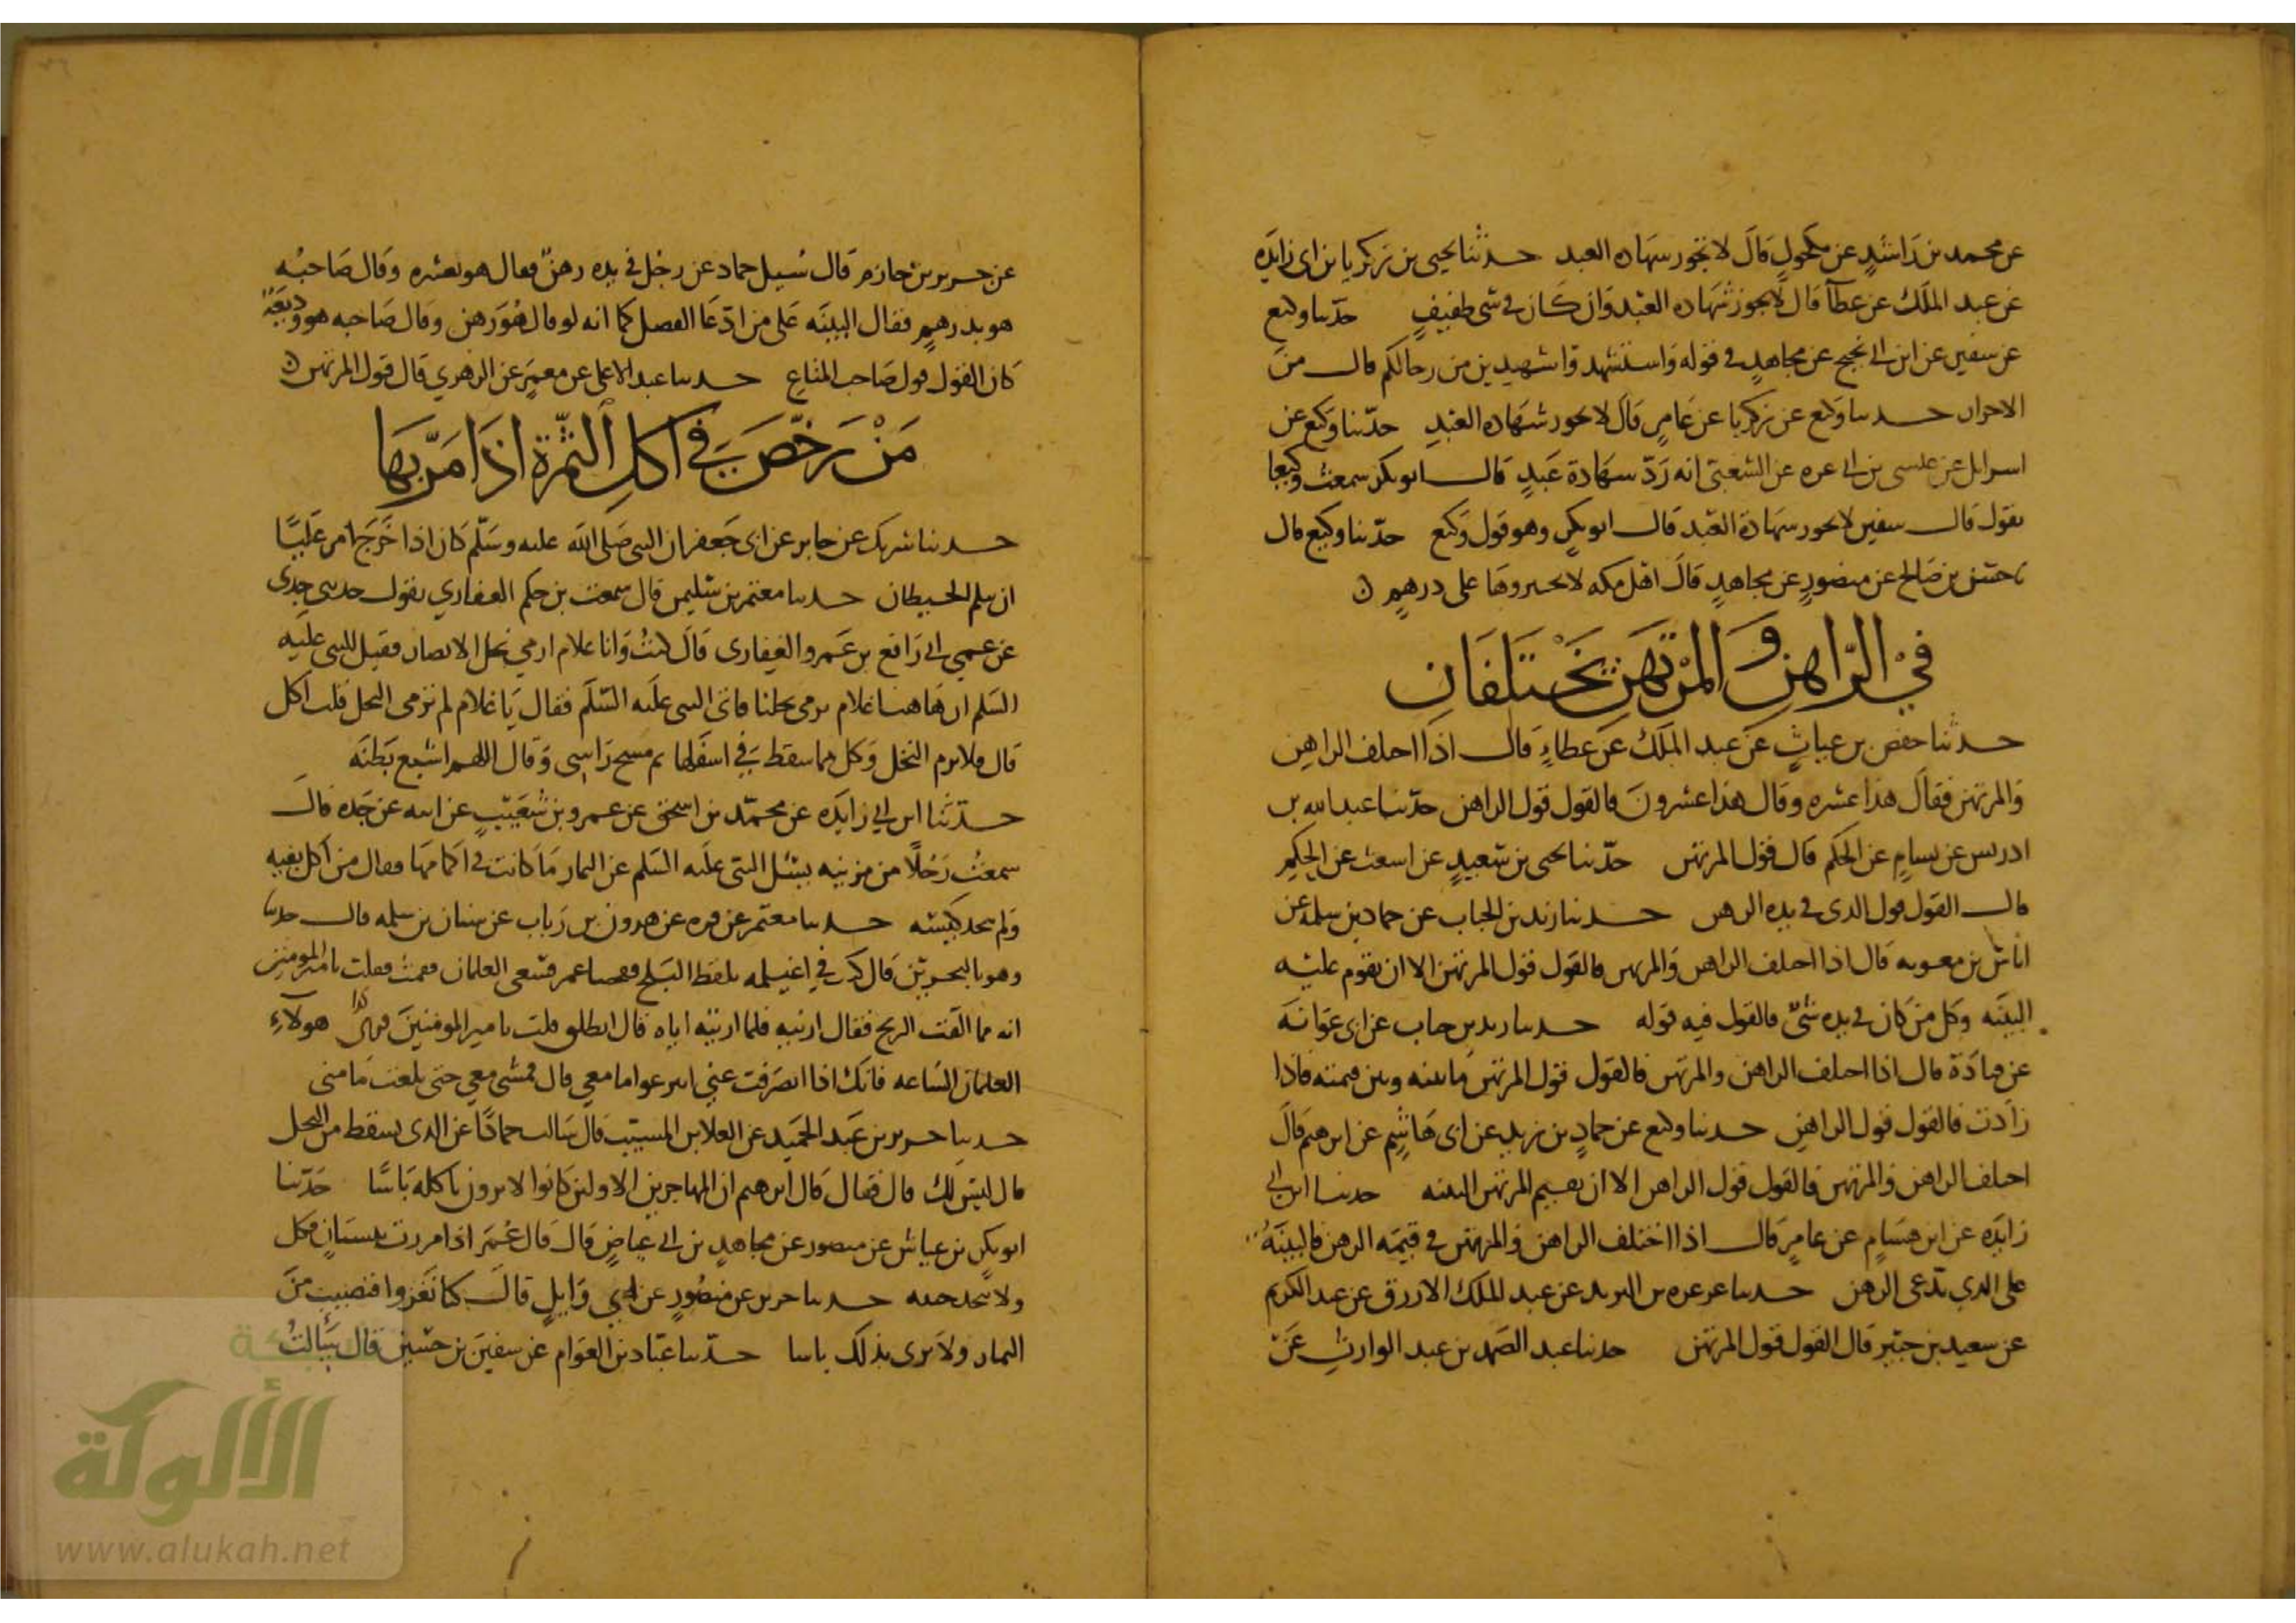 عن محمد بن راشد عن مكحول قال لا تجوز شهاده العبد حدثنا يحيى بن زكريا بن ابى زايده
عن عبد الملك عن عطآ قال لا يجوز شهاده العبد وان كان في شى طفيف حدثنا وكيع
عن سفين عن ابن ابي نجيح عن مجاهد في قوله واستشهدوا شهيدين من رجالكم قال من
الاحرار حدثنا وكيع عن زكريا عن عامر قال لا تجوز شهاده العبد حدثنا وكيع عن
اسرايل عن عيسى بن ابي عزه عن الشعبي انه رد شهادة عبد قال ابو بكر سمعت وكيعا
يقول قال سفين لا يجوز شهادة العبد قال ابو بكر وهو قول وكيع حدثنا وكيع قال
حسن بن صالح عن منصور عن مجاهد قال اهل مكه لا يجيزونها على درهم
في الراهن والمرتهن يختلفان
حدثنا حفص بن غياث عن عبد الملك عن عطاء قال اذا اختلف الراهن
والمرتهن فقال هذا عشره وقال هذا عشرون فالقول قول الراهن حدثنا عبد الله بن
ادريس عن بسام عن الحكم قال قول المرتهن حدثنا يحيى بن سعيد عن اشعث عن الحكم
قال القول قول الذى في يده الرهن حدثنا زيد بن الحباب عن حماد بن سلمة عن
اياس بن معويه قال اذا اختلف الراهن والمرتهن فالقول قول المرتهن الا ان تقوم عليه
البينه وكل من كان في يده شئ فالقول فيه قوله حدثنا زيد بن حباب عن ابى عوانه
عن قتادة قال اذا اختلف الراهن والمرتهن فالقول قول المرتهن ما بينه وبين قيمته فاذا
زادت فالقول قول الراهن حدثنا وكيع عن حماد بن زيد عن ابى هاشم عن ابرهيم قال
اختلف الراهن والمرتهن فالقول قول الراهن الا ان يقيم المرتهن البينه حدثنا ابن ابي
زايده عن ابن هشام عن عامر قال اذا اختلف الراهن والمرتهن في قيمه الرهن فالبينه
على الذي يدعى الرهن حدثنا عرعره بن البرند عن عبد الملك الازرق عن عبد الكريم
عن سعيد بن جبير قال القول قول المرتهن حدثنا عبد الصمد بن عبد الوارث عن
عن جرير بن حازم قال سيل حماد عن رجل في يده رهن فقال هو بعشره وقال صاحبه
هو بدرهم فقال البينه على من ادعا الفضل كما انه لو قال هو رهن وقال صاحبه هو وديعة
كان القول قول صاحب المتاع حدثنا عبد الاعلى عن معمر عن الزهري قال قول المرتهن
من رخص في اكل الثمرة اذا مر بها
حدثنا شريك عن جابر عن ابى جعفر ان النبى صلى الله عليه وسلم كان اذا خرج امر
ان يثلم الحيطان حدثنا معتمر بن سليمن قال سمعت بن حكم الغفاري يقول حدثتني جدتى
عن عمي ابي رافع بن عمرو الغفارى قال كنت وانا غلام ارمي نخل الانصار فقيل للنبى عليه
السلم ان هاهنا غلام يرمى نخلنا فاتى النبى عليه السلم فقال يا غلام لم ترمى النخل قلت اكل
قال فلا ترم النخل وكل مما سقط في اسفلها ثم مسح راسى وقال اللهم اشبع بطنه
حدثنا ابن ابي زايده عن محمد بن اسحق عن عمرو بن شعيب عن ابيه عن جده قال
سمعت رجلا من مزينه يسئل النبى عليه السلم عن الثمار ما كانت في اكمامها فقال من اكل بفيه
ولم يتخذ حدثنا معتمر عن قره عن هرون بن رياب عن سنان بن سلمه قال حدثنا
وهو بالبحرين قال كنت في اغيلمه يلقط البلح ففجينا عمر فسعى الغلمان فقمت فقلت يا امير المومنين
انه مما القت الريح فقال ارنيه فلما اريته اياه قال انطلق قلت يا مير المومنين هولاء
الغلمان الساعه فانك اذا انصرفت عني انتزعوا ما معي قال فمشى معي حتى بلغت مامنى
حدثنا جرير بن عبد الحميد عن العلا بن المسيب قال سالت حمادا عن الذى يسقط من النخل
قال ليس لك قال فقال قال ابرهيم ان المهاجرين الاولين كانوا لا يرون باكله باسا حدثنا
ابو بكر بن عياش عن منصور عن مجاهد بن ابي عياض قال قال عمر اذا مررت ببستان فكل
ولا تتخذ خبنه حدثنا جرير عن منصور عن ابي وايل قال كنا نغزوا فنصيب من
الثمار ولا نرى بذلك باسا حدثنا عباد بن العوام عن سفين بن حسين قال سالت
الألوكة
www.alukah.net